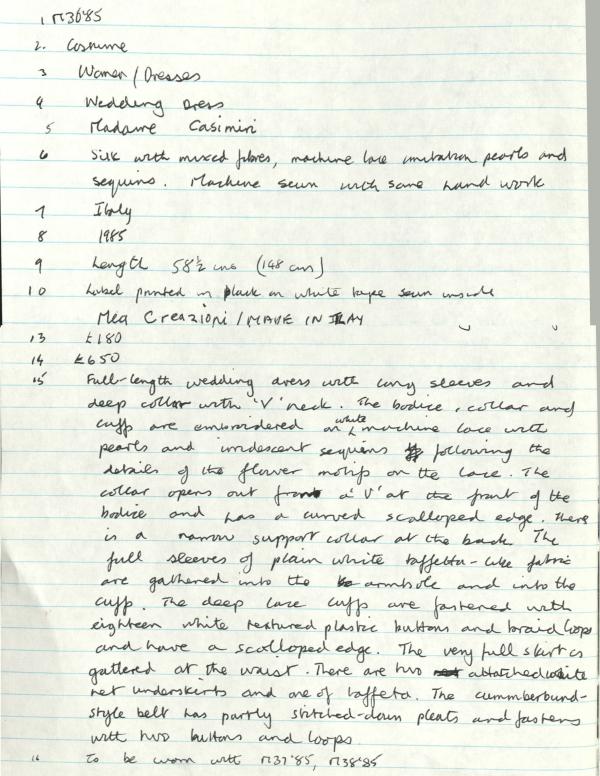 1 M36'85
2. Costume
3 Women / Dresses
4 Wedding Dress
5 Madame Casimiri
6 Silk with mixed fibres, machine lace imitation pearls and
sequins. Machine sewn with some hand work
7 Italy
8 1985
9 Length 58½ ins (148 cm)
10 Label printed in black on white tape sewn inside
Mea Creazioni / MADE IN ITALY
13 £180
14 £650
15 Full-length wedding dress with long sleeves and
deep collar with 'V' neck. The bodice, collar and
cuffs are embroidered on white machine lace with
pearls and irridescent sequins following the
details of the flower motifs on the lace. The
collar opens out from a 'V' at the front of the
bodice and has a curved scalloped edge. There
is a narrow support collar at the back. The
full sleeves of plain white taffetta-like fabric
are gathered into the armhole and into the
cuff. The deep lace cuffs are fastened with
eighteen white textured plastic buttons and braid loops
and have a scolloped edge. The very full skirt is
gathered at the waist. There are two attatched white
net underskirts and one of taffeta. The cummberbund-
style belt has partly stitched-down pleats and fastens
with two buttons and loops.
16 To be worn with M37'85, M38'85